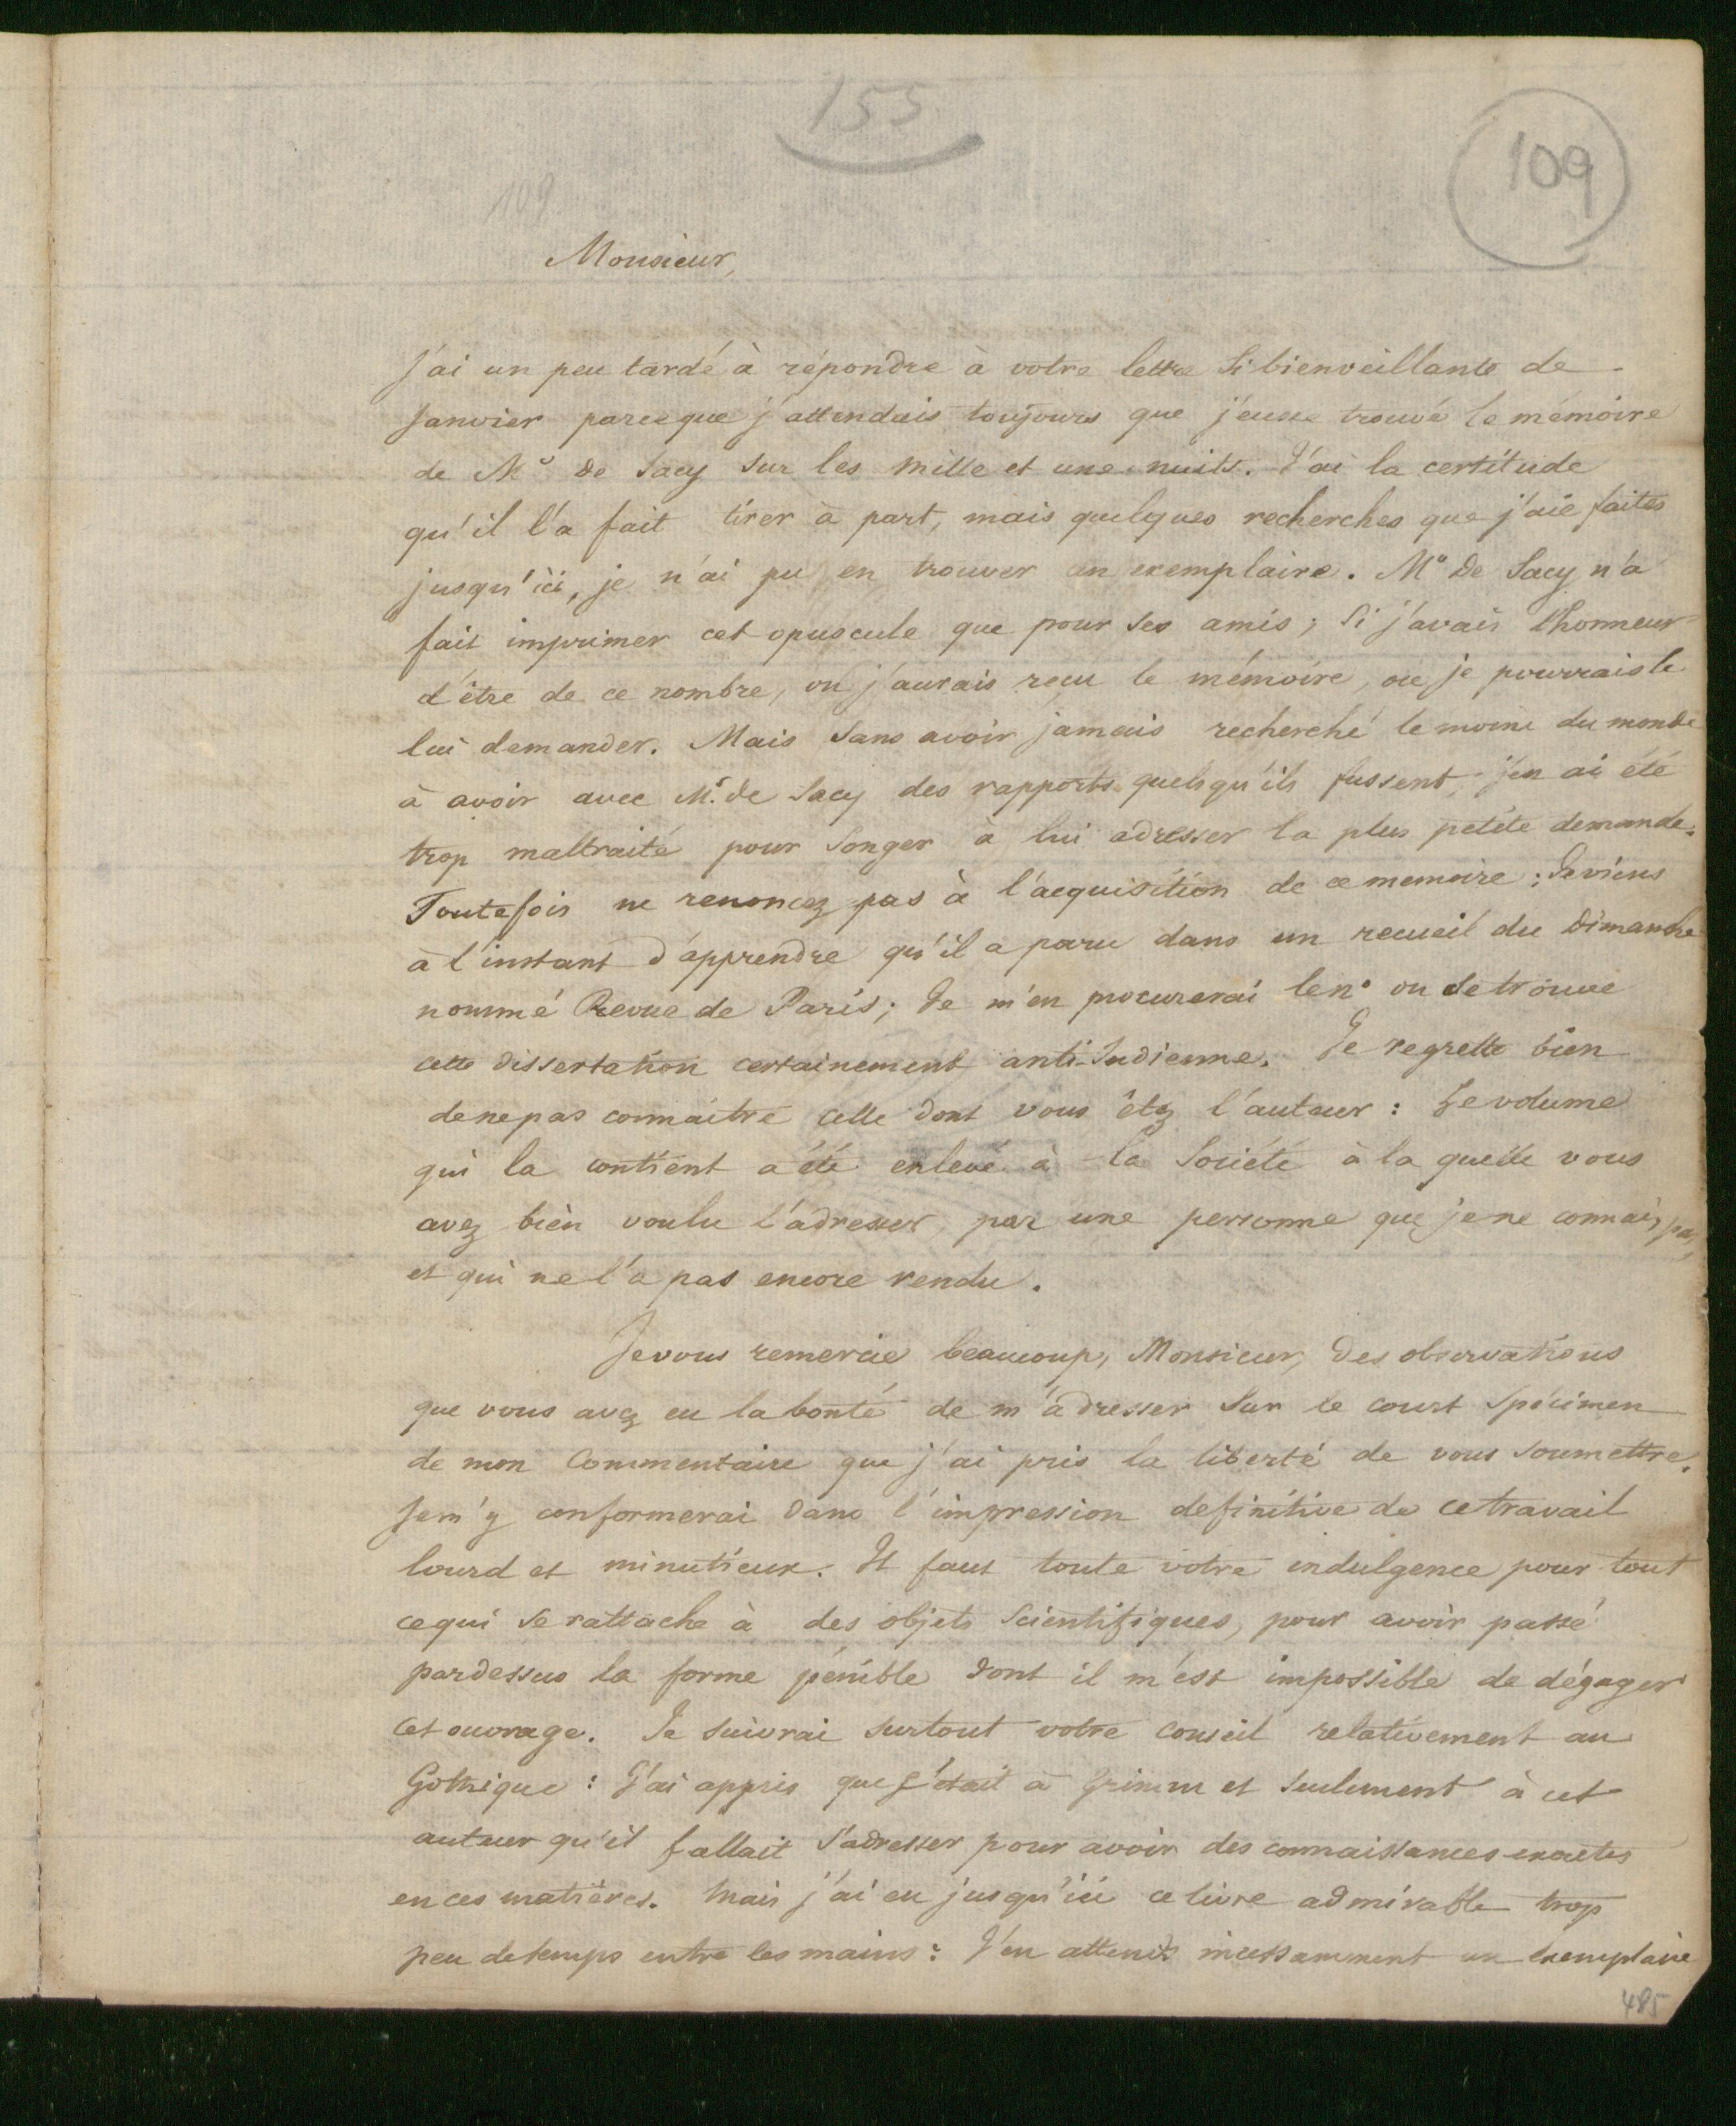 155
109
109
Monsieur,
J'ai un peu tardé à répondre à votre lettre si bienveillante de
Janvier parceque j'attendais toujours que j'eusse trouvé le mémoire
de Mr de Sacy sur les mille et une nuits. J'ai la certitude
qu'il l'a fait tirer à part, mais quelques recherches que j'aie faites
jusqu'ici, je n'ai pu en trouver un exemplaire. Mr de Sacy n'a
fait imprimer cet opuscule que pour ses amis; si j'avais l'honneur
d'être de ce nombre, ou j'aurais reçu le mémoire, ou je pourrais le
lui demander. Mais sans avoir jamais recherché le moins du monde
à avoir avec Mr. de Sacy des rapports quels qu'ils fussent, j'en ai été
trop maltraité pour songer à lui adresser la plus petite demande.
Toutefois ne renoncez pas à l'acquisition de ce memoire: Je viens
à l'instant d'apprendre qu'il a paru dans un recueil du Dimanche
nommé Revue de Paris; Je m'en procurerai le no ou se trouve
cette dissertation certainement anti-Indienne. Je regrette bien
de ne pas connaitre celle dont vous êtez l'auteur: Le volume
qui la contient a été enlevé à la Société à la quelle vous
avez bien voulu l'adresser, par une personne que je ne connais pas,
et qui ne l'a pas encore rendu.
Je vous remercie beaucoup, Monsieur, des observations
que vous avez eu la bonté de m'adresser sur le court spécimen
de mon Commentaire que j'ai pris la liberté de vous soumettre.
Je m'y conformerai dans l'impression definitive de ce travail
lourd et minutieux. Il faut toute votre indulgence pour tout
ce qui se rattache à des objets scientifiques, pour avoir passé
pardessus la forme pénible dont il m'est impossible de dégager
cet ouvrage. Je suivrai surtout votre conseil relativement au
Gothique: J'ai appris que c'était à Grimm et seulement à cet
auteur qu'il fallait s'adresser pour avoir des connaissances exactes
en ces matières. Mais j'ai eu jusqu'ici ce livre admirable trop
peu de temps entre les mains: J'en attends incessamment un exemplaire
485